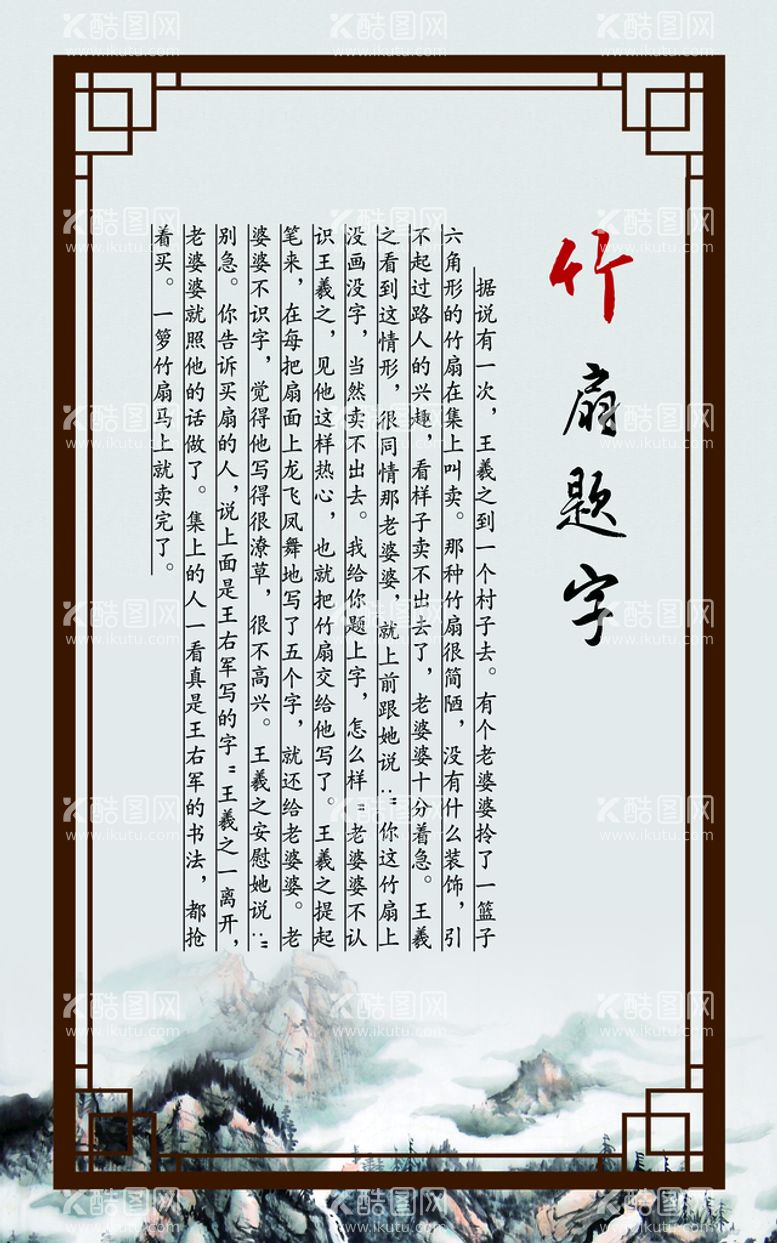 竹扇题字
据说有一次，王羲之到一个村子去。有个老婆婆拎了一篮子
六角形的竹扇在集上叫卖。那种竹扇很简陋，没有什么装饰，引
不起过路人的兴趣，看样子卖不出去了，老婆婆十分着急。王羲
之看到这情形，很同情那老婆婆，就上前跟她说："你这竹扇上
没画没字，当然卖不出去。我给你题上字，怎么样"老婆婆不认
识王羲之，见他这样热心，也就把竹扇交给他写了。王羲之提起
笔来，在每把扇面上龙飞凤舞地写了五个字，就还给老婆婆。老
婆婆不识字，觉得他写得很潦草，很不高兴。王羲之安慰她说："
别急。你告诉买扇的人，说上面是王右军写的字"王羲之一离开，
老婆婆就照他的话做了。集上的人一看真是王右军的书法，都抢
着买。一箩竹扇马上就卖完了。
酷图网
www.ikutu.com